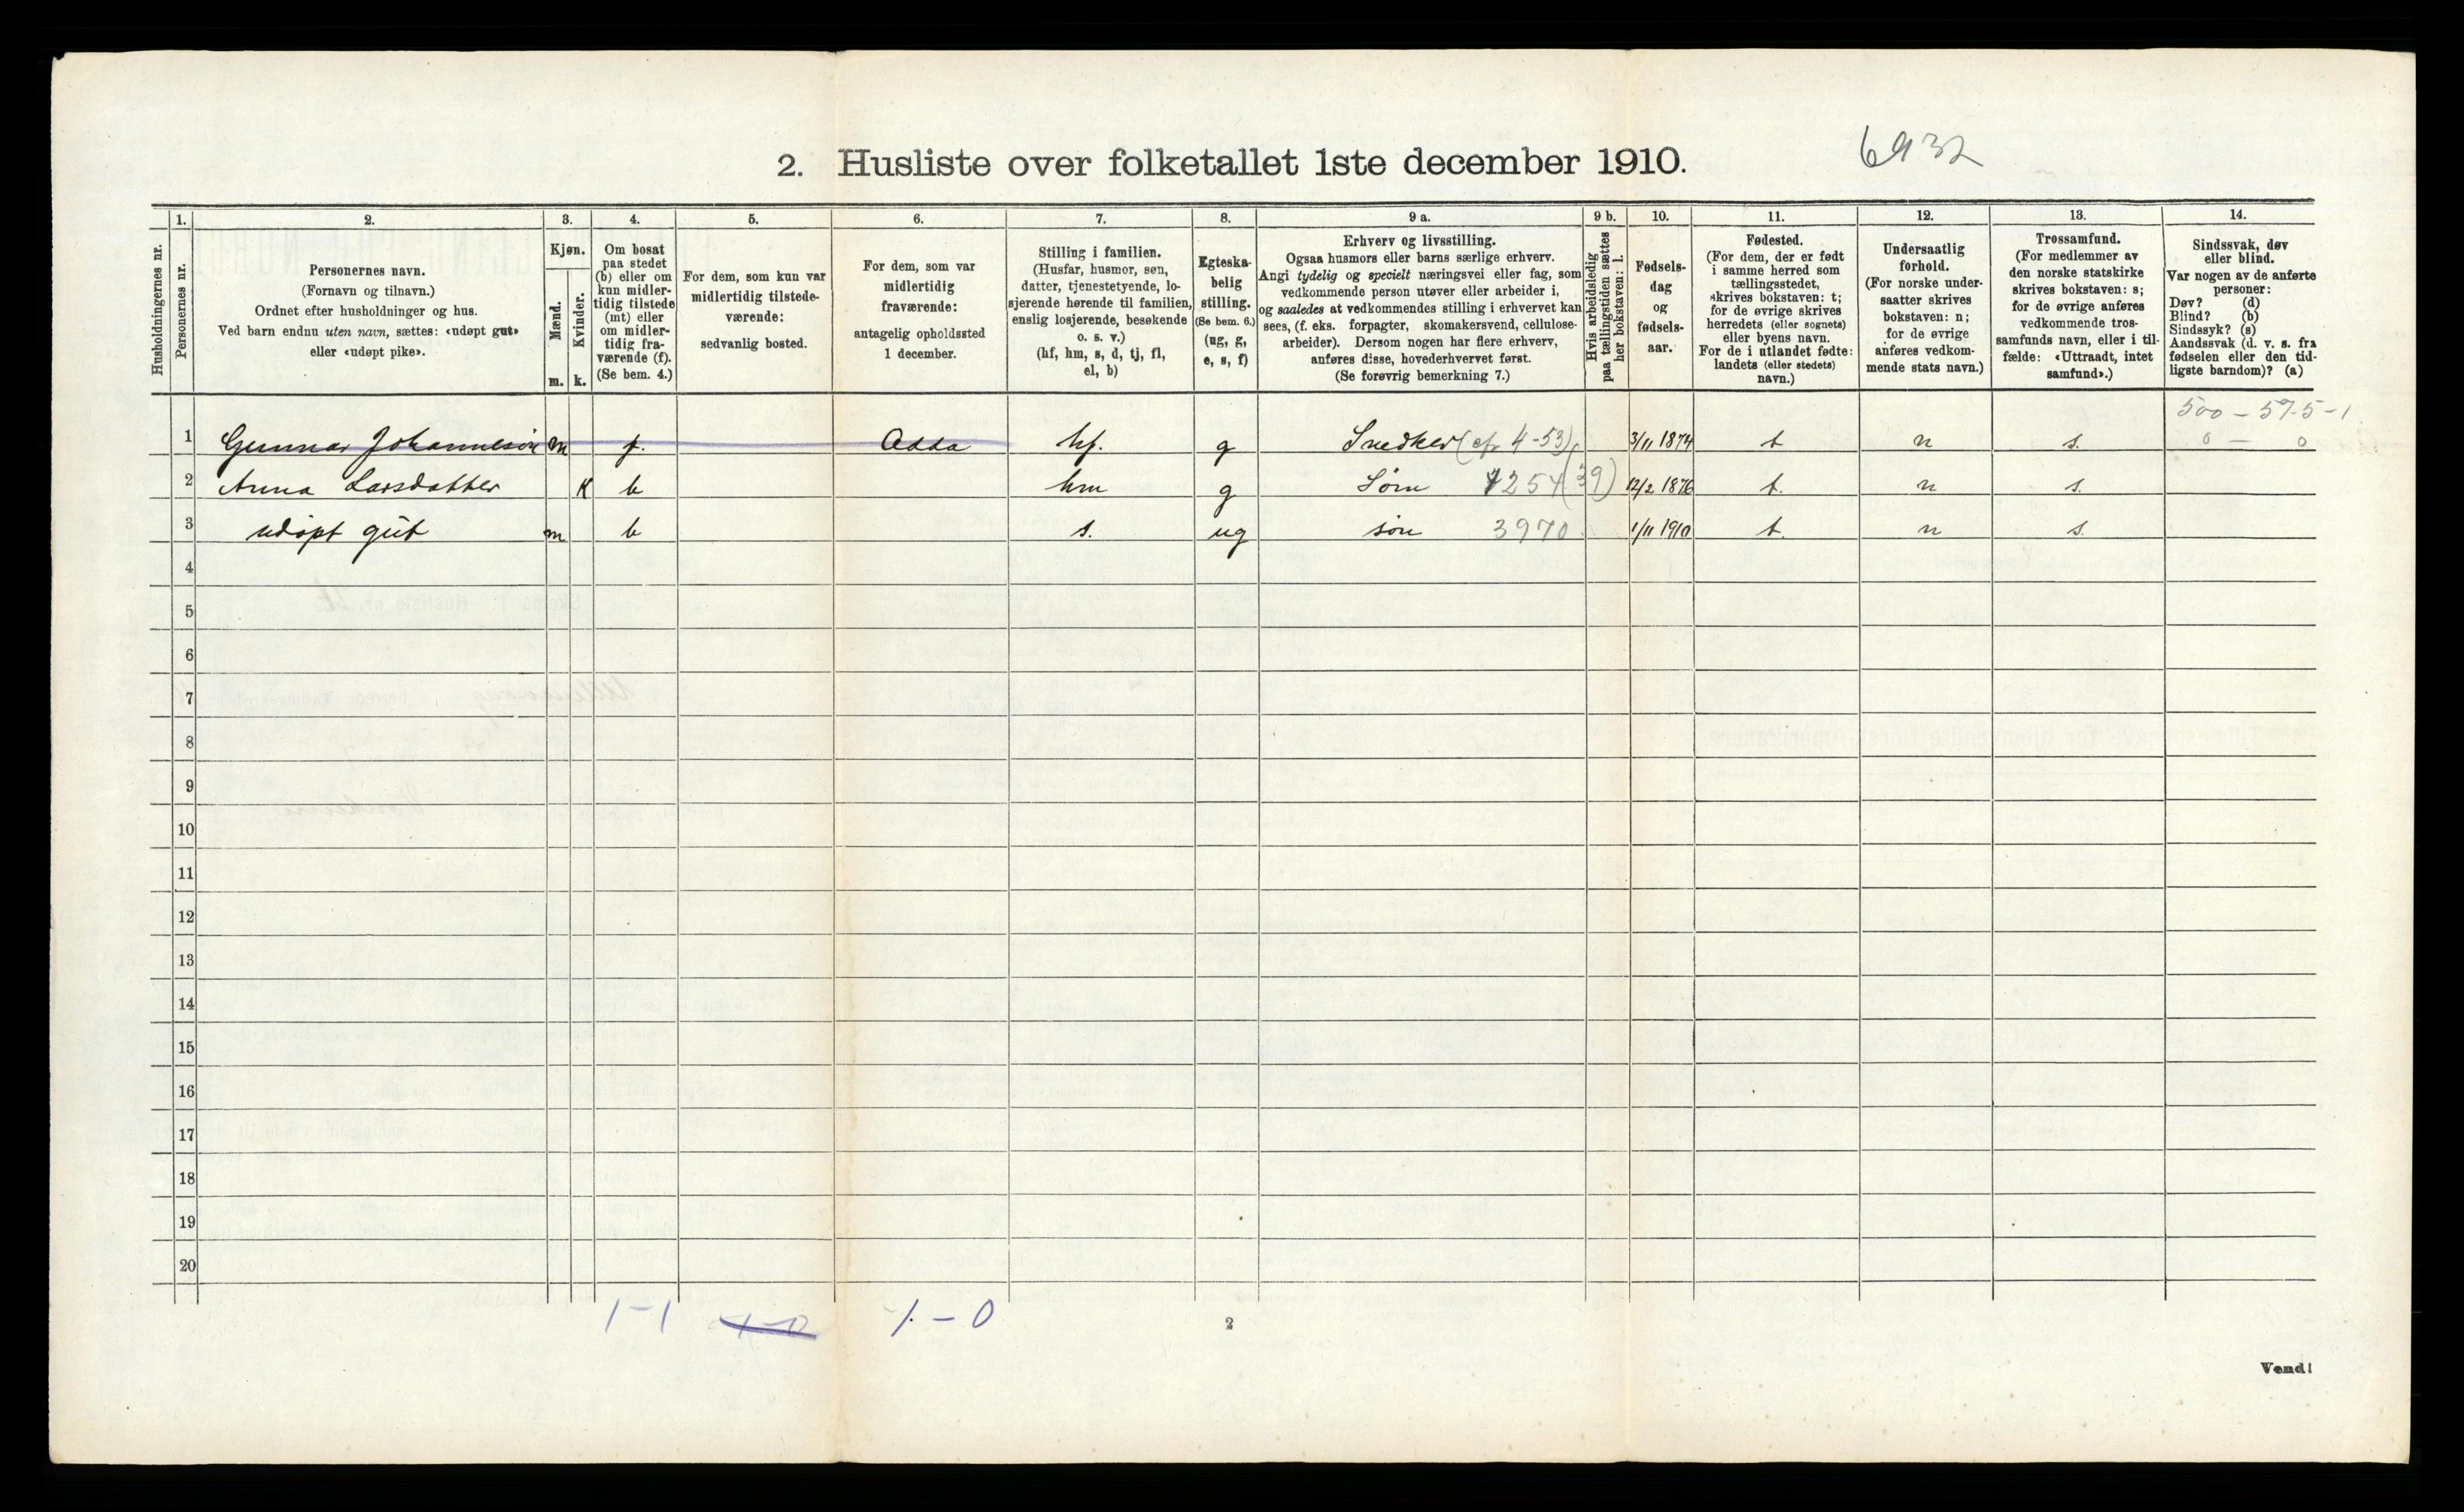 2. Husliste over folketallet 1ste december 1910.
6932
Husholdningernes nr.
1.
Personernes nr.
2.
Personernes navn.
(Fornavn og tilnavn.)
Ordnet efter husholdninger og hus.
Ved barn endnu uten navn, sættes: «udøpt gut»
eller «udøpt pike».
3.
Kjøn.
Mænd.
Kvinder.
m. k.
4.
Om bosat
paa stedet
(b) eller om
kun midler-
tidig tilstede
(mt) eller
om midler-
tidig fra-
værende (f).
(Se bem. 4.)
5.
For dem, som kun var
midlertidig tilstede-
værende:
sedvanlig bosted.
6.
For dem, som var
midlertidig
fraværende:
antagelig opholdssted
1 december.
7.
Stilling i familien.
(Husfar, husmor, søn,
datter, tjenestetyende, lo-
sjerende hørende til familien,
enslig losjerende, besøkende
o. s. v.)
(hf, hm, s, d, tj, fl,
el, b)
8.
Egteska-
belig
stilling.
(Se bem. 6.)
(ug, g,
e, s, f)
9 a.
Erhverv og livsstilling.
Ogsaa husmors eller barns særlige erhverv.
Angi tydelig og specielt næringsvei eller fag, som
vedkommende person utøver eller arbeider i,
og saaledes at vedkommendes stilling i erhvervet kan
sees, (f. eks. forpagter, skomakersvend, cellulose-
arbeider). Dersom nogen har flere erhverv,
anføres disse, hovederhvervet først.
(Se forøvrig bemerkning 7.)
9 b.
Hvis arbeidsledig
paa tællingstiden sættes
her bokstaven: l.
10.
Fødsels-
dag
og
fødsels-
aar.
11.
Fødested.
(For dem, der er født
i samme herred som
tællingsstedet,
skrives bokstaven: t;
for de øvrige skrives
herredets (eller sognets)
eller byens navn.
For de i utlandet fødte:
landets (eller stedets)
navn.)
12.
Undersaatlig
forhold.
(For norske under-
saatter skrives
bokstaven: n;
for de øvrige
anføres vedkom-
mende stats navn.)
13.
Trossamfund.
(For medlemmer av
den norske statskirke
skrives bokstaven: s;
for de øvrige anføres
vedkommende tros-
samfunds navn, eller i til-
fælde: «Uttraadt, intet
samfund».)
14.
Sindssvak, døv
eller blind.
Var nogen av de anførte
personer:
Døv? (d)
Blind? (b)
Sindssyk? (s)
Aandssvak (d. v. s. fra
fødselen eller den tid-
ligste barndom)? (a)
500 – 575 – 1
1 Gunnar Johannesøn m f. Odda hf. g Snedker (cfr 4-53) 3/11 1874 t n s. 0 – 0
2 Anna Larsdatter K b hm g 12/2 1876 t. n s.
3 udøpt gut m b s. ug søn 3970 1/11 1910 t. n s.
4
5
6
7
8
9
10
11
12
13
14
15
16
17
18
19
20
1–1 1–0 1–0
2
Vend!